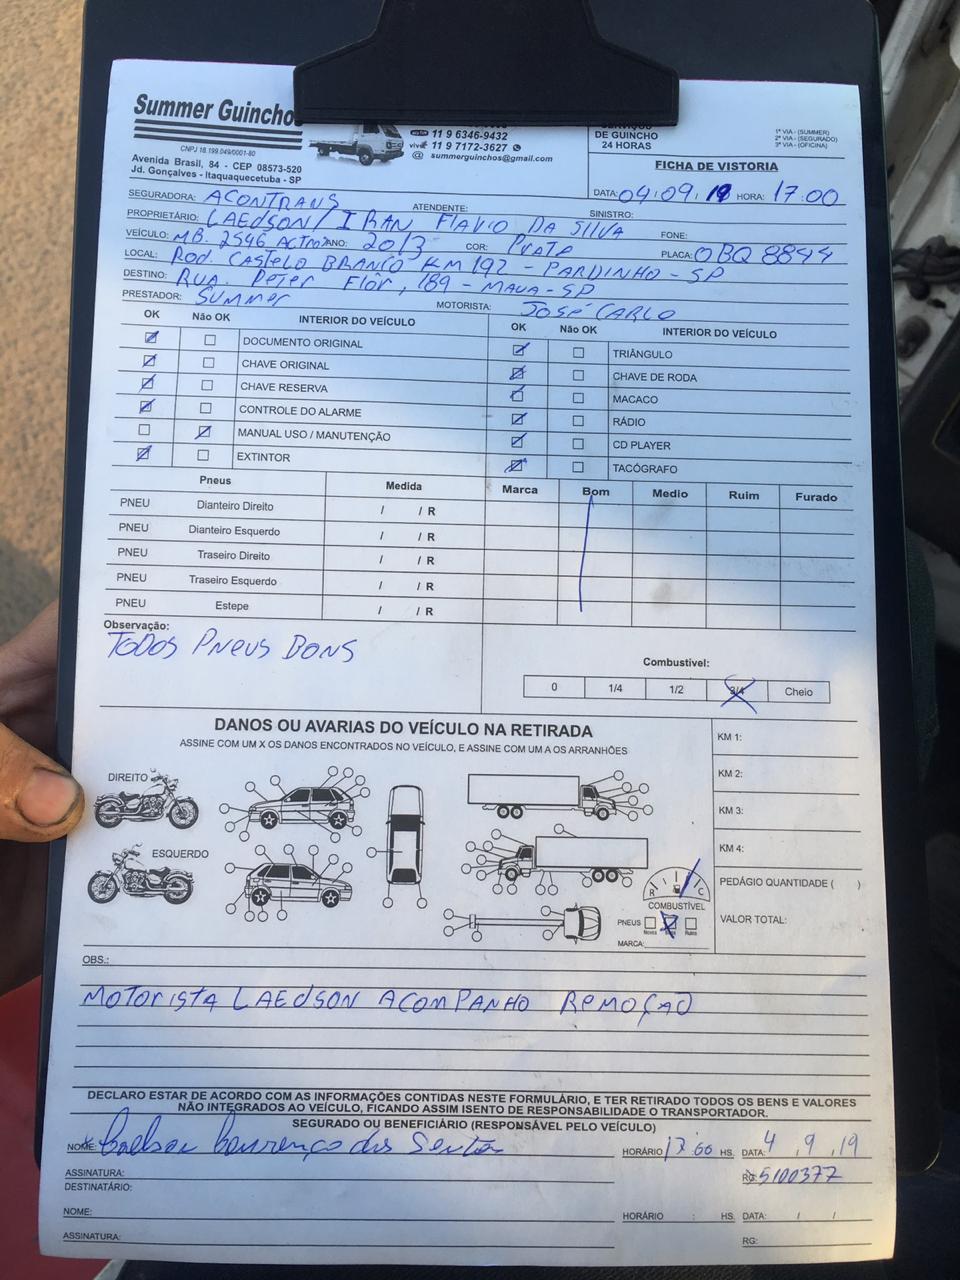 Summer Guinchos
CNPJ 18.199.049/0001-80
Avenida Brasil, 84 - CEP 08573-520
Jd. Gonçalves - Itaquaquecetuba - SP
11 9 6346-9432
vivo 11 9 7172-3627
@ summerguinchos@gmail.com
SERVIÇOS
DE GUINCHO
24 HORAS
1ª VIA - (SUMMER)
2ª VIA - (SEGURADO)
3ª VIA - (OFICINA)
FICHA DE VISTORIA
DATA: 04/09/19 HORA: 17:00
SEGURADORA: ACONTRANS ATENDENTE: SINISTRO:
PROPRIETÁRIO: LAEDSON / IRAN FLAVIO DA SILVA FONE:
VEÍCULO: MB. 2546 ACTROS ANO: 2013 COR: PRATA PLACA: OBQ 8844
LOCAL: ROD. CASTELO BRANCO KM 192 - PARDINHO - SP
DESTINO: RUA. PETER FLÔR, 189 - MAUA - SP
PRESTADOR: SUMMER MOTORISTA: JOSÉ CARLO
OK Não OK INTERIOR DO VEÍCULO OK Não OK INTERIOR DO VEÍCULO
DOCUMENTO ORIGINAL TRIÂNGULO
CHAVE ORIGINAL CHAVE DE RODA
CHAVE RESERVA MACACO
CONTROLE DO ALARME RÁDIO
MANUAL USO / MANUTENÇÃO CD PLAYER
EXTINTOR TACÓGRAFO
Pneus Medida Marca Bom Medio Ruim Furado
PNEU Dianteiro Direito / / R
PNEU Dianteiro Esquerdo / / R
PNEU Traseiro Direito / / R
PNEU Traseiro Esquerdo / / R
PNEU Estepe / / R
Observação:
TODOS PNEUS BONS
Combustível:
0 1/4 1/2 3/4 Cheio
DANOS OU AVARIAS DO VEÍCULO NA RETIRADA
ASSINE COM UM X OS DANOS ENCONTRADOS NO VEÍCULO, E ASSINE COM UM A OS ARRANHÕES
DIREITO
ESQUERDO
R C
COMBUSTÍVEL
PNEUS
Novos Ruins
MARCA:
KM 1:
KM 2:
KM 3:
KM 4:
PEDÁGIO QUANTIDADE ( )
VALOR TOTAL:
OBS.:
MOTORISTA LAEDSON ACOMPANHO REMOÇÃO
DECLARO ESTAR DE ACORDO COM AS INFORMAÇÕES CONTIDAS NESTE FORMULÁRIO, E TER RETIRADO TODOS OS BENS E VALORES
NÃO INTEGRADOS AO VEÍCULO, FICANDO ASSIM ISENTO DE RESPONSABILIDADE O TRANSPORTADOR.
SEGURADO OU BENEFICIÁRIO (RESPONSÁVEL PELO VEÍCULO)
NOME: Laedson Lourenço dos Santos HORÁRIO 17:00 HS. DATA: 4, 9, 19
ASSINATURA: RG: 5100377
DESTINATÁRIO:
NOME: HORÁRIO : HS. DATA: / /
ASSINATURA: RG: